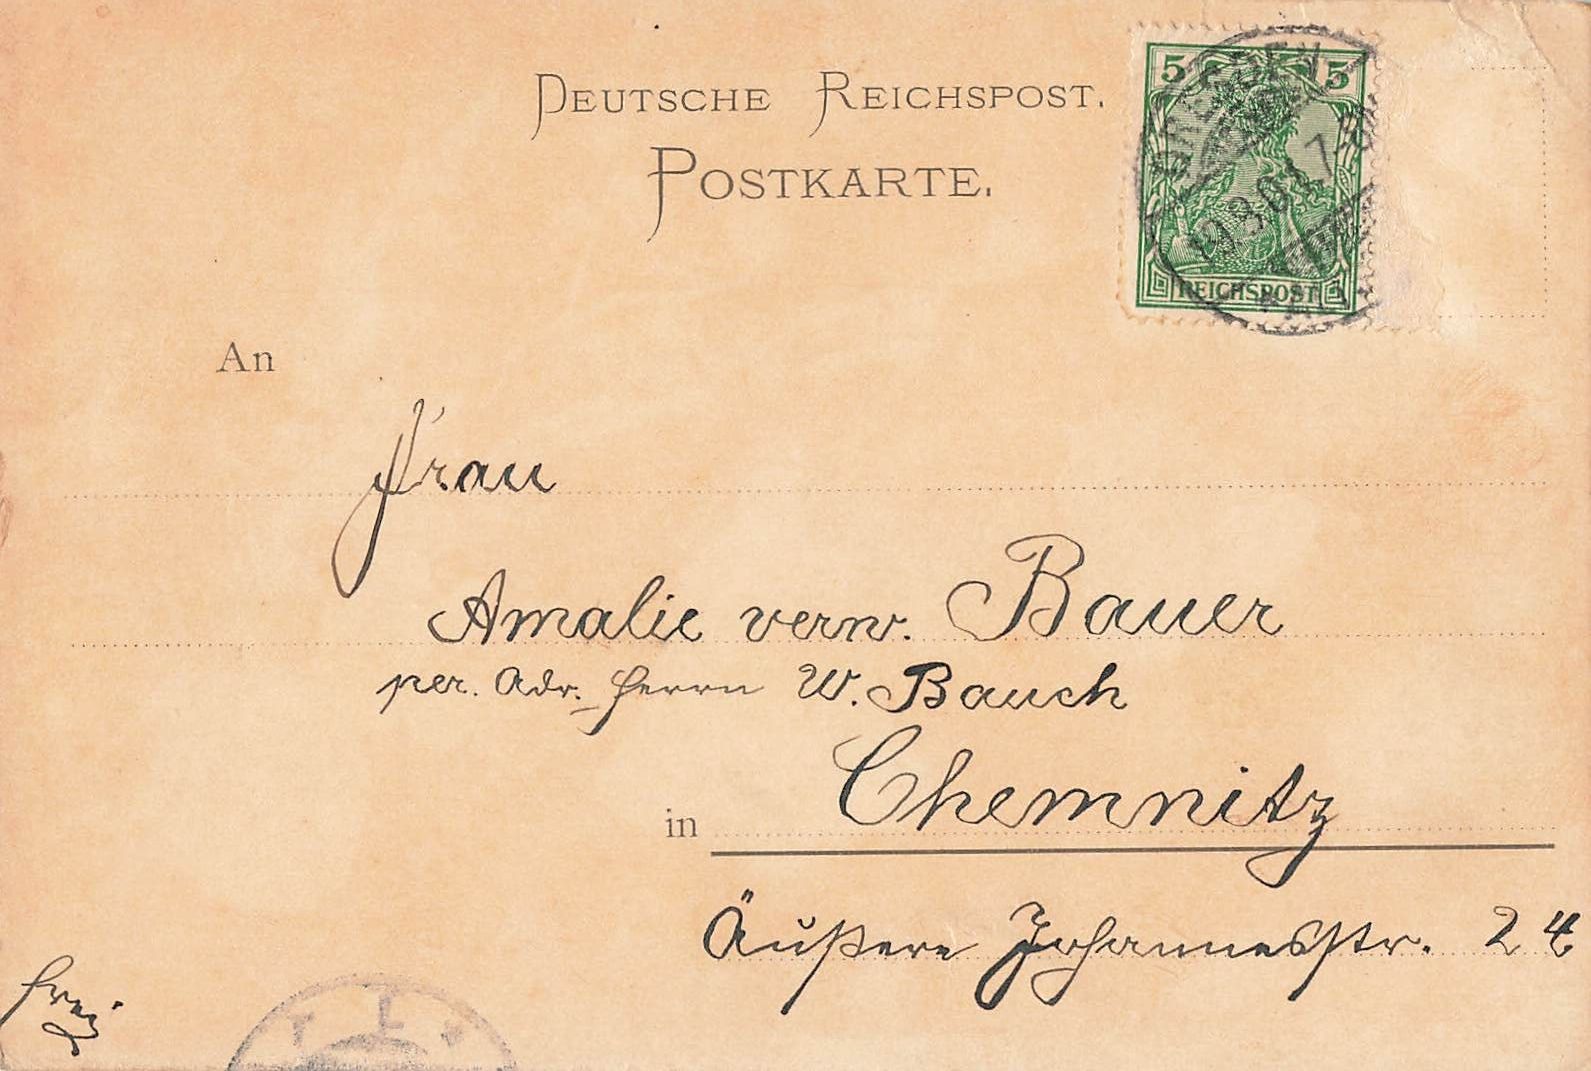 DEUTSCHE REICHSPOST.
POSTKARTE.
5 5
DRESDEN
19.9.01.7-8
REICHSPOST
An
Frau
Amalie verw. Bauer
per. Adr. Herrn W. Bauch
in Chemnitz
Äußere Johannesstr. 24
frei